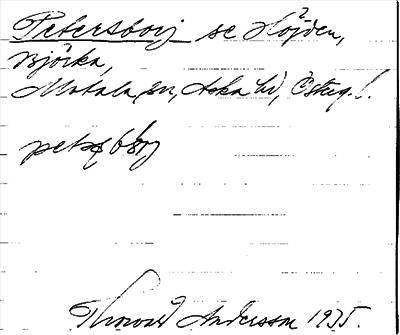 Petersborg se Höjden,
Björka,
Motala sn, Aska hd, Östergl.
Thorvald Andersson 1935.